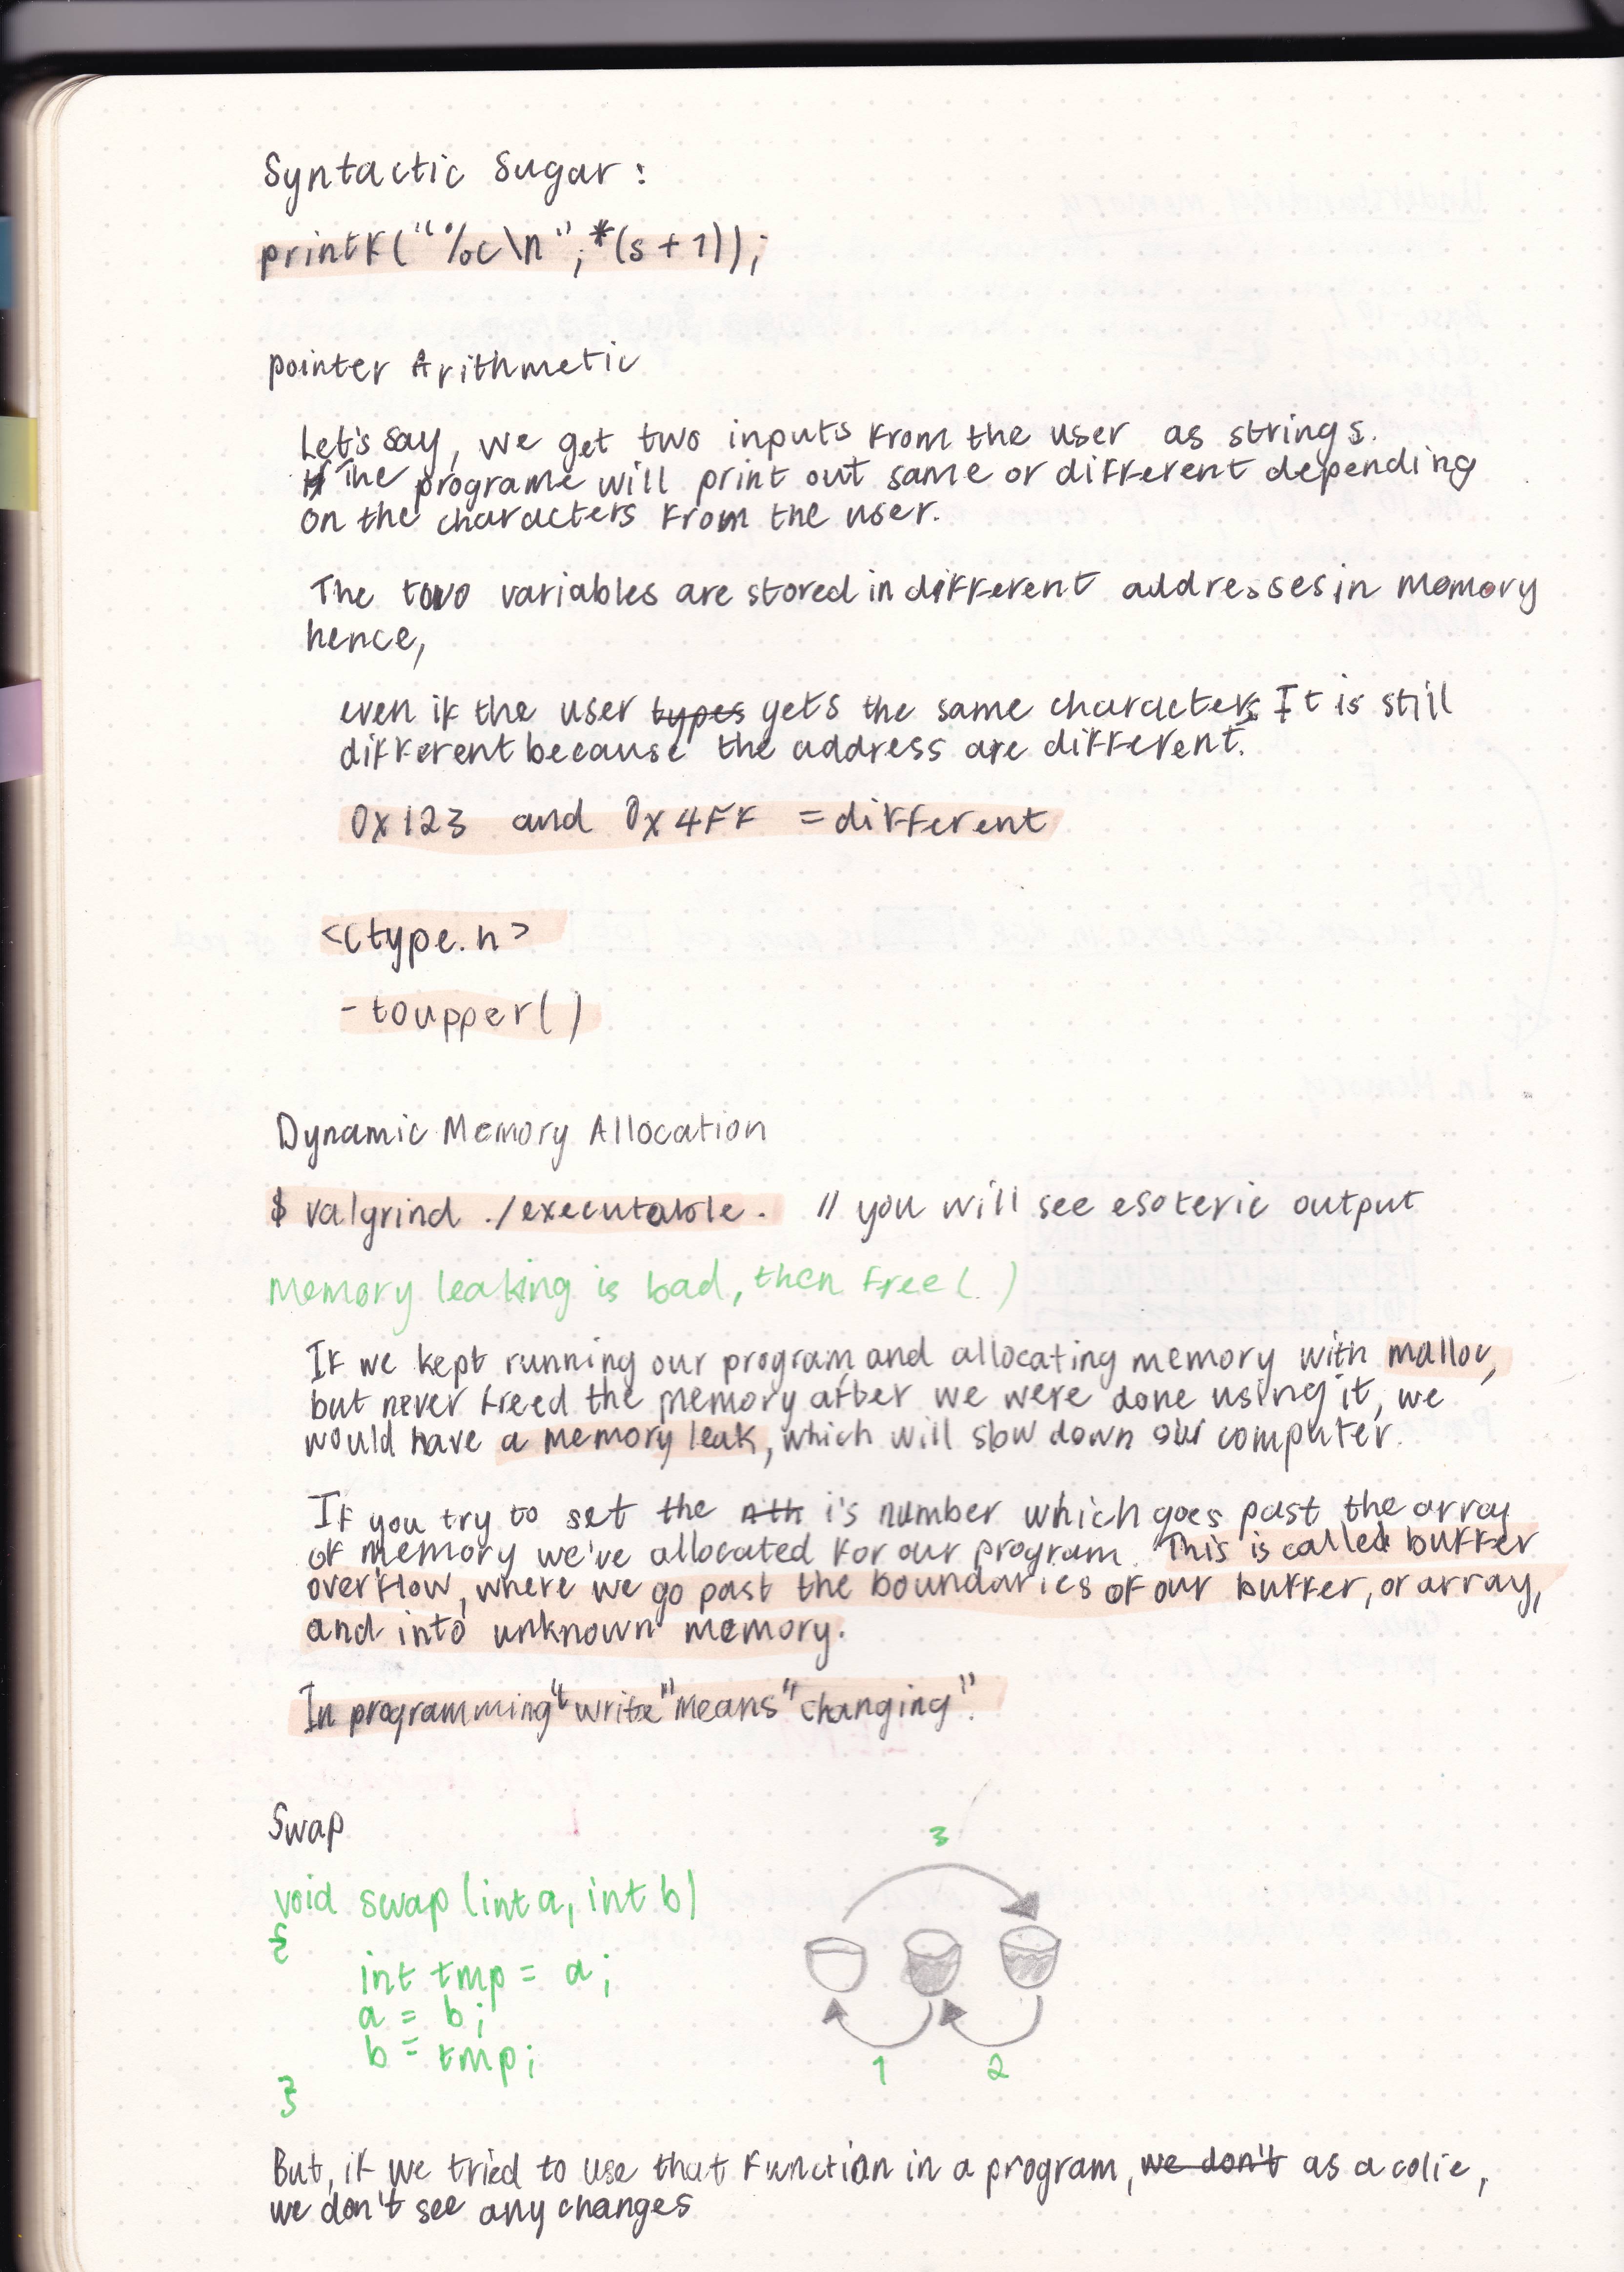 Syntactic Sugar:
printf("%c\n", *(s + 1));
pointer Arithmetic
Let's say, we get two inputs from the user as strings.
The programe will print out same or different depending
on the characters from the user.
The two variables are stored in different addresses in memory
hence,
even if the user types gets the same characters It is still
different because the address are different.
0x123 and 0x4FF = different
<ctype.h>
- toupper()
Dynamic Memory Allocation
$ valgrind ./executable. // you will see esoteric output
Memory leaking is bad, then free()
If we kept running our program, and allocating memory with malloc,
but never freed the memory after we were done using it, we
would have a memory leak, which will slow down our computer.
If you try to set the nth i's number which goes past the array
of memory we've allocated for our program. This is called buffer
overflow, where we go past the boundaries of our buffer, or array,
and into unknown memory.
In programming "write" means "changing".
Swap
3
void swap(int a, int b)
{
int tmp = a;
a = b;
b = tmp;
1 2
}
But, if we tried to use that function in a program, we don't as a
we don't see any changes